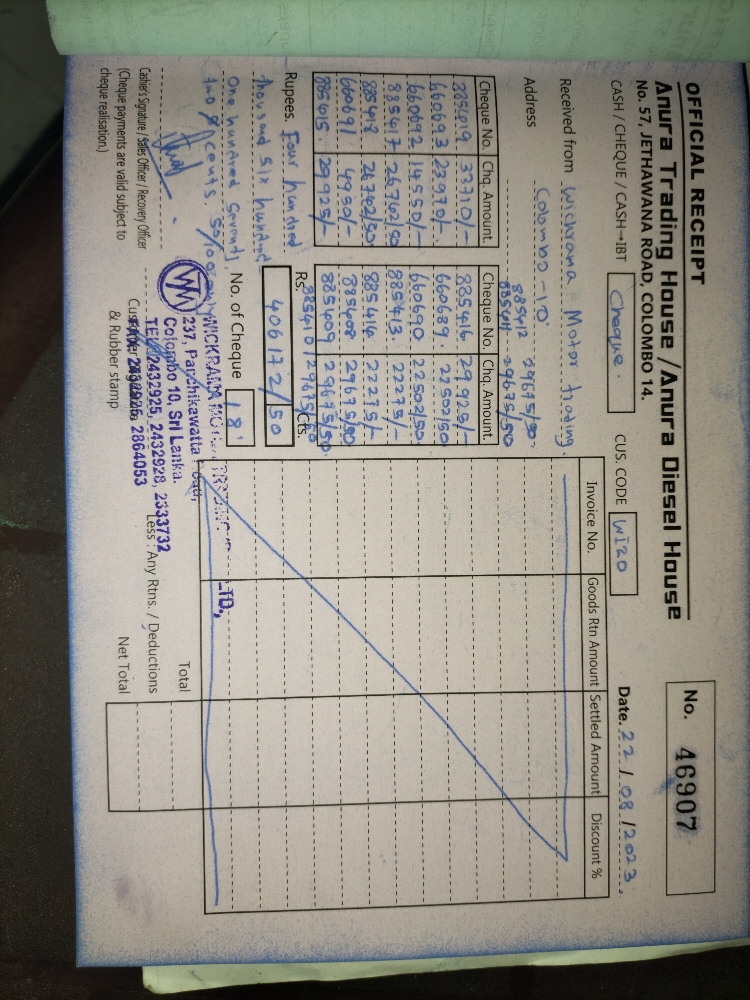 OFFICIAL RECEIPT
Anura Trading House / Anura Diesel House
No. 57, JETHAWANA ROAD, COLOMBO 14.
No. 46907
CASH / CHEQUE / CASH→IBT Cheque.
CUS. CODE WI20
Date. 22 / 08 / 2023
Received from Wickrama Motor trading.
Address Colombo - 10.
885412 29675/50
885411 29675/50
Cheque No. Chq. Amount. Cheque No. Chq. Amount.
885419 33710/- 885416 29925/-
660693 23970/- 660689 22502/50
660692 14550/- 660690 22502/50
885417 26702/50 885413 22275/-
885418 26702/50 885414 22275/-
660691 4950/- 885408 29675/50
885415 29925/- 885409 29675/50
885410 29675/50
Invoice No. Goods Rtn Amount Settled Amount Discount %
Rupees. Four hundred
thousand six hundred
One hundred Seventy
two & cents 50/100 only
Rs. Cts.
406172/50
No. of Cheque 18
Cashier's Signature / Sales Officer / Recovery Officer
(Cheque payments are valid subject to
cheque realisation.)
WICKRAMA MOTOR TRADING LTD.,
237, Panchikawatta Road,
Colombo 10, Sri Lanka.
TEL: 2432925, 2432928, 2333732
2864053
Customer
& Rubber stamp
Total
Less : Any Rtns. / Deductions
Net Total